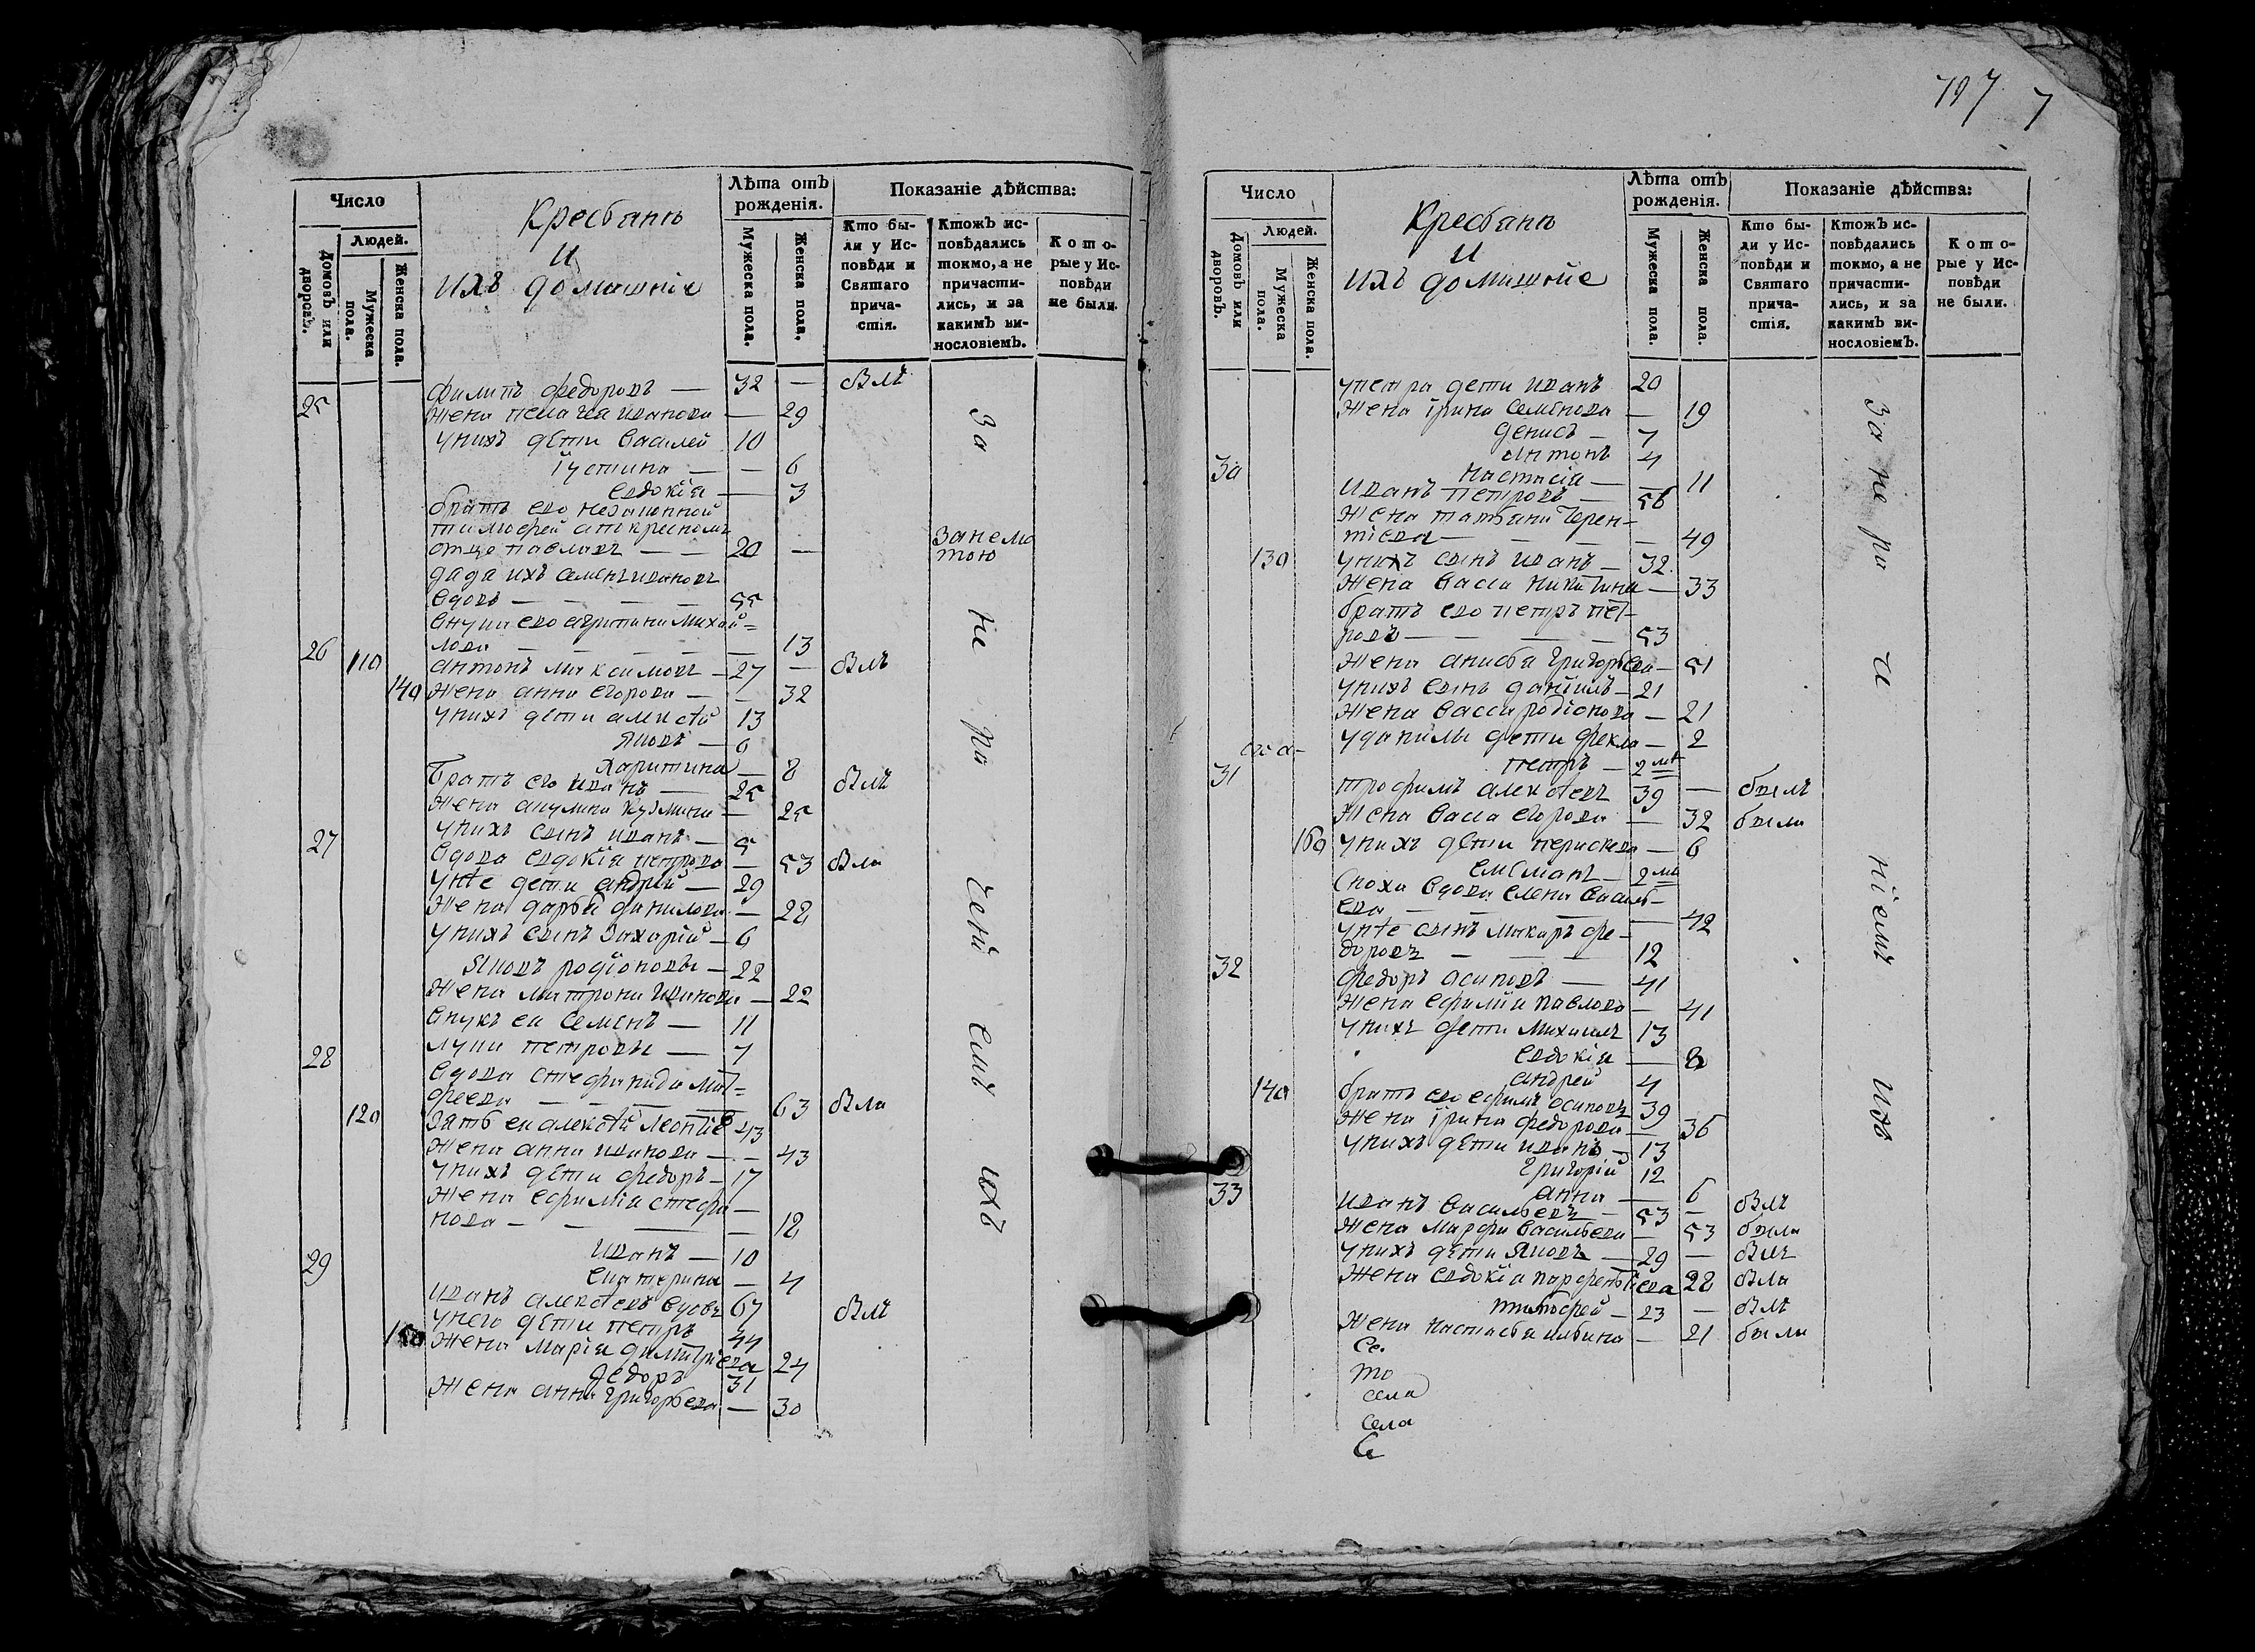 Число
Людей.
Домовъ или дворовъ.
Мужеска пола.
Женска пола.
Крестьяне
и
ихъ домашніе
Лѣта отъ рожденія.
Мужеска пола.
Женска пола.
Показаніе дѣйства:
Кто были у Исповѣди и Святаго причастія.
Ктожъ исповѣдались токмо, а не причастились, и за какимъ винословіемъ.
Которые у Исповѣди не были.
25 Филипъ Федоровъ — 32 — былъ
жена Пелагея Иванова — 29
у нихъ дети Василей 10
Іустина — — 6
Евдокія — 3
братъ его незаконной
Тимофей а по кресномъ
отце Павловъ — — 20 — за немо
тою
дядя ихъ Семенъ Ивановъ
вдовъ — — — — 55
внука его Агрипина Михай=
лова — — — — — 13
26 110 Антонъ Максимовъ — 27 — былъ
140 жена Анна Егорова — — 32
у нихъ дети Алексѣй 13
Яковъ — 6
Харитина — 8
Братъ его Иванъ — 25 былъ
жена Акулина Кузмина — 25
у нихъ сынъ Иванъ — 5
27 Вдова Евдокія Петрова — 53 была
у нѣе дети Андрей — 29
жена Дарья Данилова — 28
у нихъ сынъ Захарій — 6
Яковъ Родіоновы — 22
жена Матрона Иванова — 22
внукъ ея Семенъ — 11
Лука Петровы — 7
28 Вдова Стефанида Мат=
феева — — — — 63 была
120 Зять ея Алексѣй Леонтіе 43
жена Анна Иванова — — 43
у нихъ дети Федоръ — 17
жена Ефимія Стефа —
нова — — — — 18
Иванъ — 10
Екатерина — 4
29 Иванъ Алексѣевъ вдовъ 67 былъ
у него дети Петръ 44
150 жена Марія Димитріева 24
Федоръ 31
жена Анна Григорьева — 30
за не ра чені емъ ихъ
797 7
Число
Людей.
Домовъ или дворовъ.
Мужеска пола.
Женска пола.
Крестьяне
и
ихъ домашніе
Лѣта отъ рожденія.
Мужеска пола.
Женска пола.
Показаніе дѣйства:
Кто были у Исповѣди и Святаго причастія.
Ктожъ исповѣдались токмо, а не причастились, и за какимъ винословіемъ.
Которые у Исповѣди не были.
у Петра дети Иванъ 20
жена Ірина Семенова — 19
Денисъ — 7
Антонъ 4
Настасія — — 11
30 Иванъ Петровъ — 56
жена Татьяна Терен—
тіева — — — — 49
130 у нихъ сынъ Иванъ — 32
жена Васса Никитина — 33
братъ его Петръ Пет—
ровъ — — — — 53
жена Анисья Григорьева — 51
у нихъ сынъ Даніилъ — 21
жена Васса Родіонова — 21
у Данилы дети Фекла — 2
Петръ — 2 м
31 Трофимъ Алексѣевъ 39 — былъ
жена Васса Егорова — 32 была
160 у нихъ дети Парискева — 6
Емеліанъ — 2 м
сноха вдова Елена Василь—
ева — — — — 42
у нѣе сынъ Макаръ Фе—
доровъ — — — 12
32 Федоръ Осиповъ — 41
жена Ефимія Павлова — 41
у нихъ дети Михаилъ 13
Евдокія — 8
Андрей 4
140 братъ его Ефимъ Осиповъ 39
жена Ірина Федорова — 36
у нихъ дети Иванъ — 13
Григорій 12
Анна — 6
33 Иванъ Васильевъ — 53 — былъ
жена Марфа Васильева — 53 была
у нихъ дети Яковъ — 29 — былъ
жена Евдокія Парфеньтіева 28 была
Тимофей — 23 — былъ
жена Настасья Ильина — 21 была
Се.
то
села
села
Се
за не ра че ніемъ ихъ